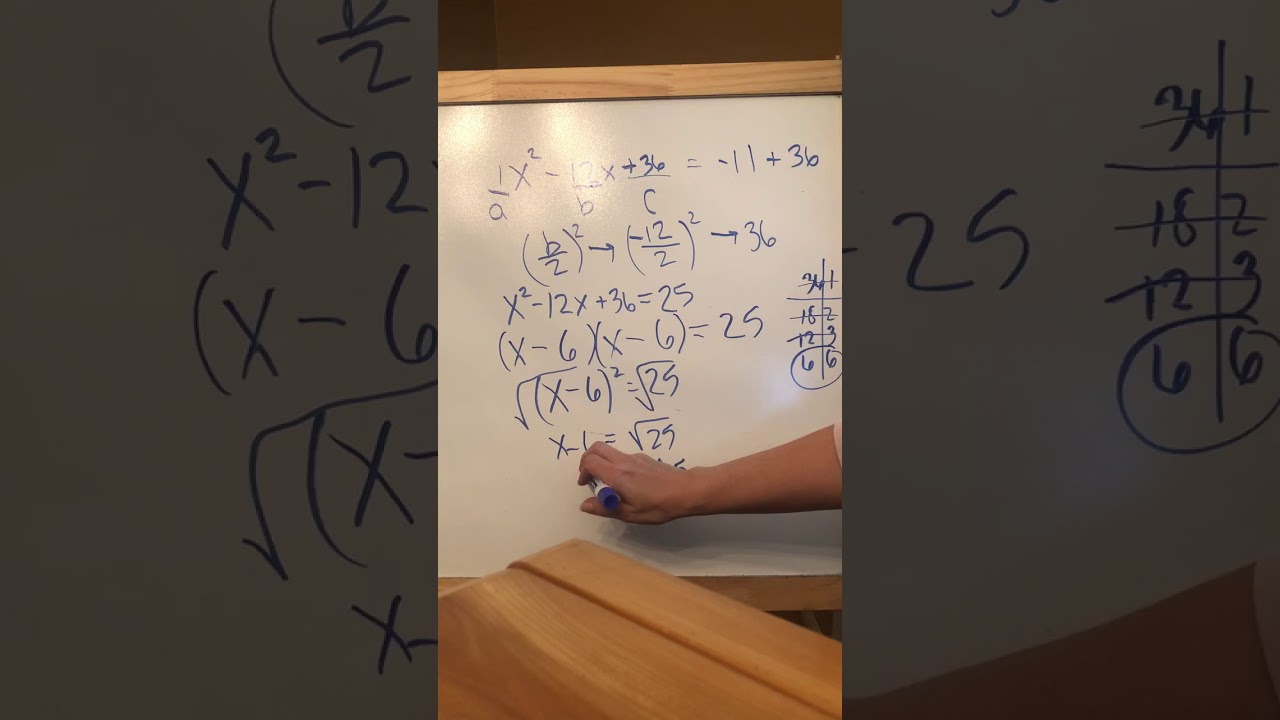 1x² - 12x + 36 = -11 + 36
a b c
(b/2)² → (-12/2)² → 36
x² - 12x + 36 = 25
(x - 6)(x - 6) = 25
√(x - 6)² = √25
x - = √25
36 1
18 2
12 3
6 6